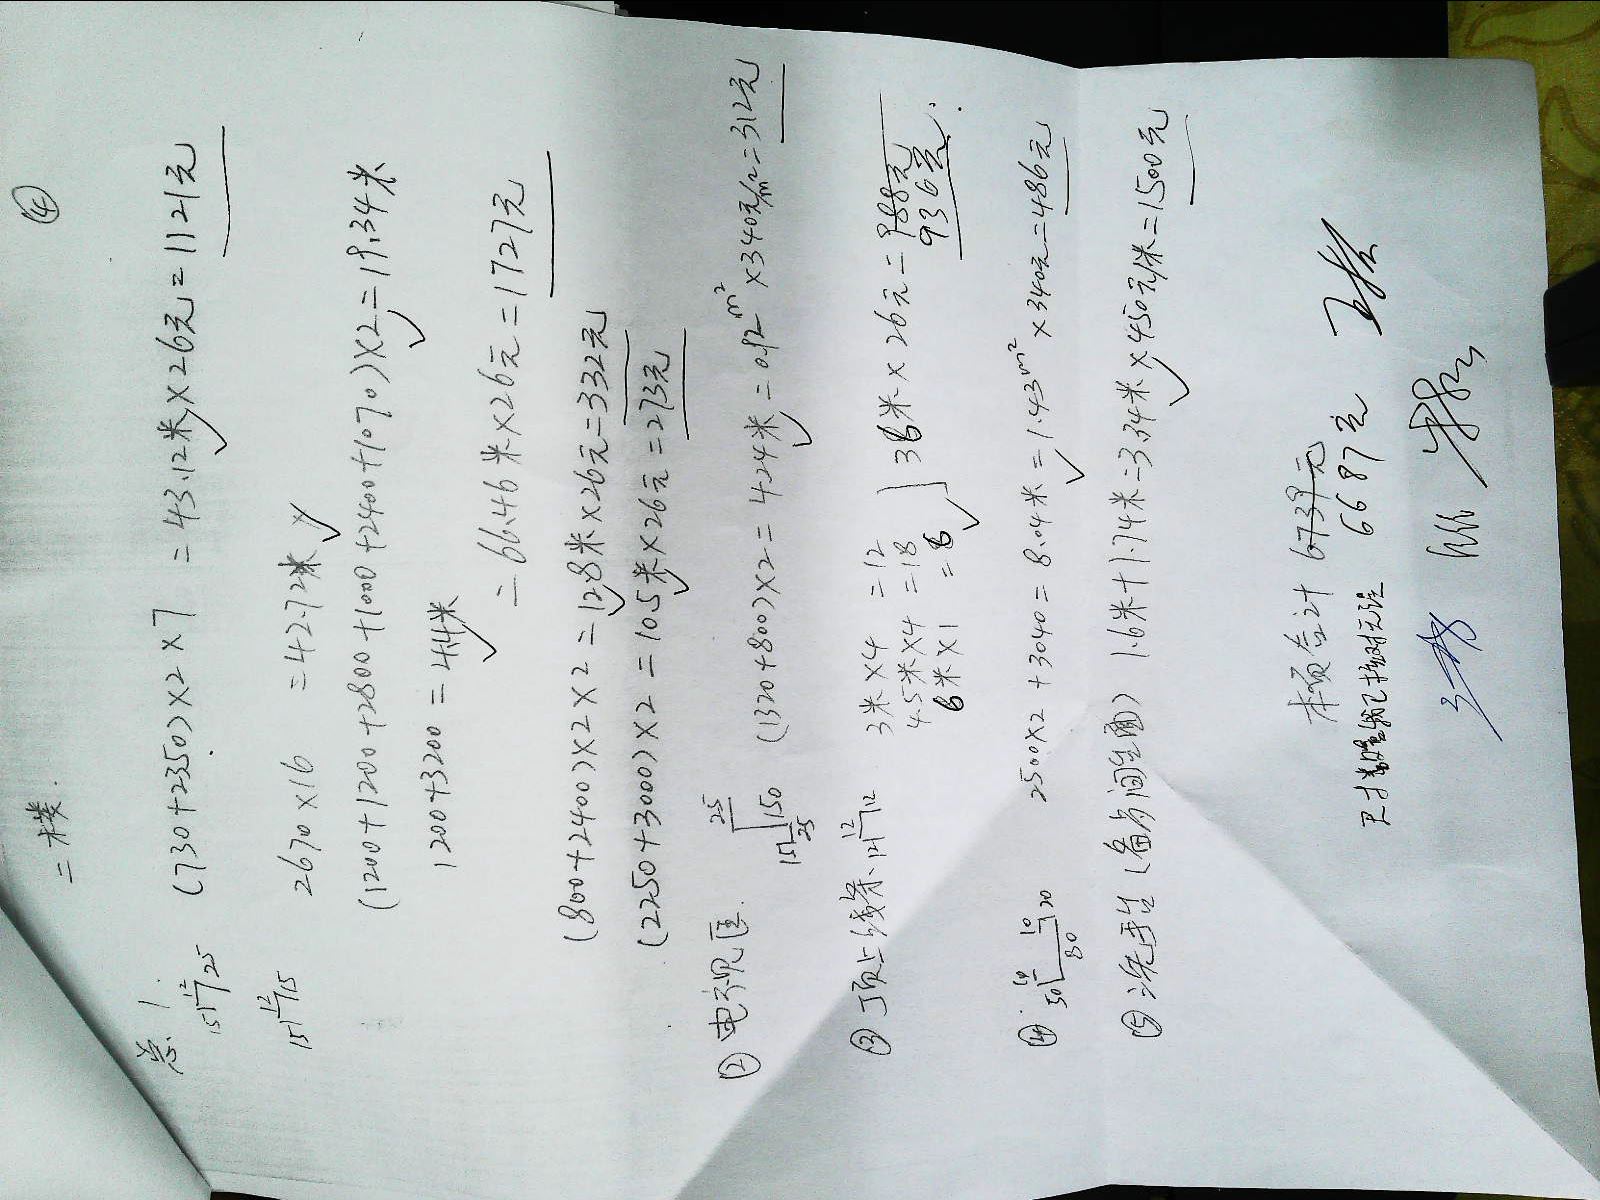 ④
二楼.
总1.
15 12 25
(730+2350)×2×7 =43.12米×26元=1121元
15 12 15
2670×16 =42.72米
(1200+1200+2800+1000+2400+1070)×2=19.34米
1200+3200=4.4米
=66.46米×26元=1727元
(800+2400)×2×2=12.8米×26元=332元
(2250+3000)×2=10.5米×26元=273元
② 电视匡.
25 15 150 25
(1320+800)×2=4.24米=0.92m²×340元/m²=312元
③ 顶上线条.12 12 12
3米×4 =12
4.5米×4=18
6米×1 =6
36米×26元=988元
936元.
④ 50 10 10 20 80
2500×2+3040=8.04米=1.43m²×340元=486元
⑤洗手台(备房间生面) 1.6米+1.74米=3.34米×450元/米=1500元
本项合计 6739元
6687元